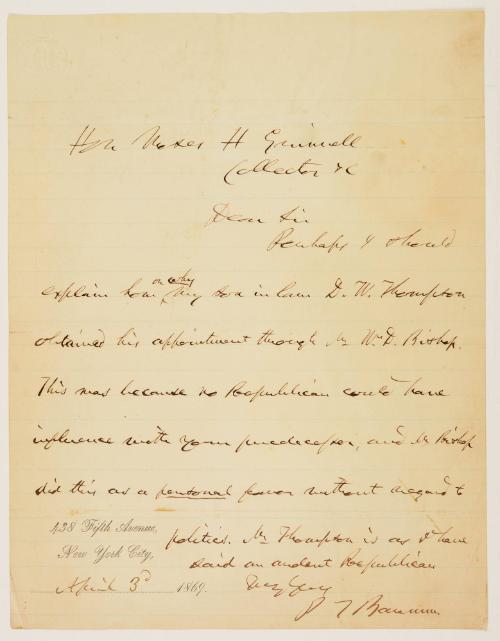 Hon Moses H Grinnell
Collector &c
Dear Sir
Perhaps I should
on why
explain how my son in law D. W. Thompson
obtained his appointment through Mr Wm D. Bishop.
This was because no Republican could have
influence with your predecessor, and Mr Bishop
did this as a personal favor without regard to
politics. Mr Thompson is as I have
said an ardent Republican
438 Fifth Avenue,
New York City,
April 3d 1869.
Truly yours
P T Barnum